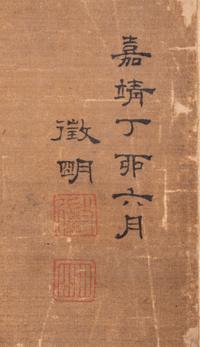 嘉靖丁卯六月
徵明